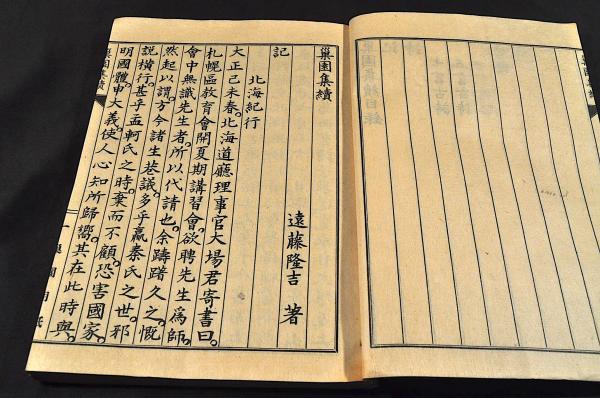 巢園集續
遠藤隆吉 著
記
北海紀行
大正己未春。北海道廳理事官大場君寄書曰。
札幌區教育會開夏期講習會。欲聘先生爲師。
會中無識先生者。所以代請也。余躊躇久之。慨
然起以謂。方今諸生巷議。多乎嬴秦氏之世。邪
說橫行。甚乎孟軻氏之時。棄而不顧。恐害國家。
明國體。申大義。使人心知所歸嚮。其在此時與。
巢園集續